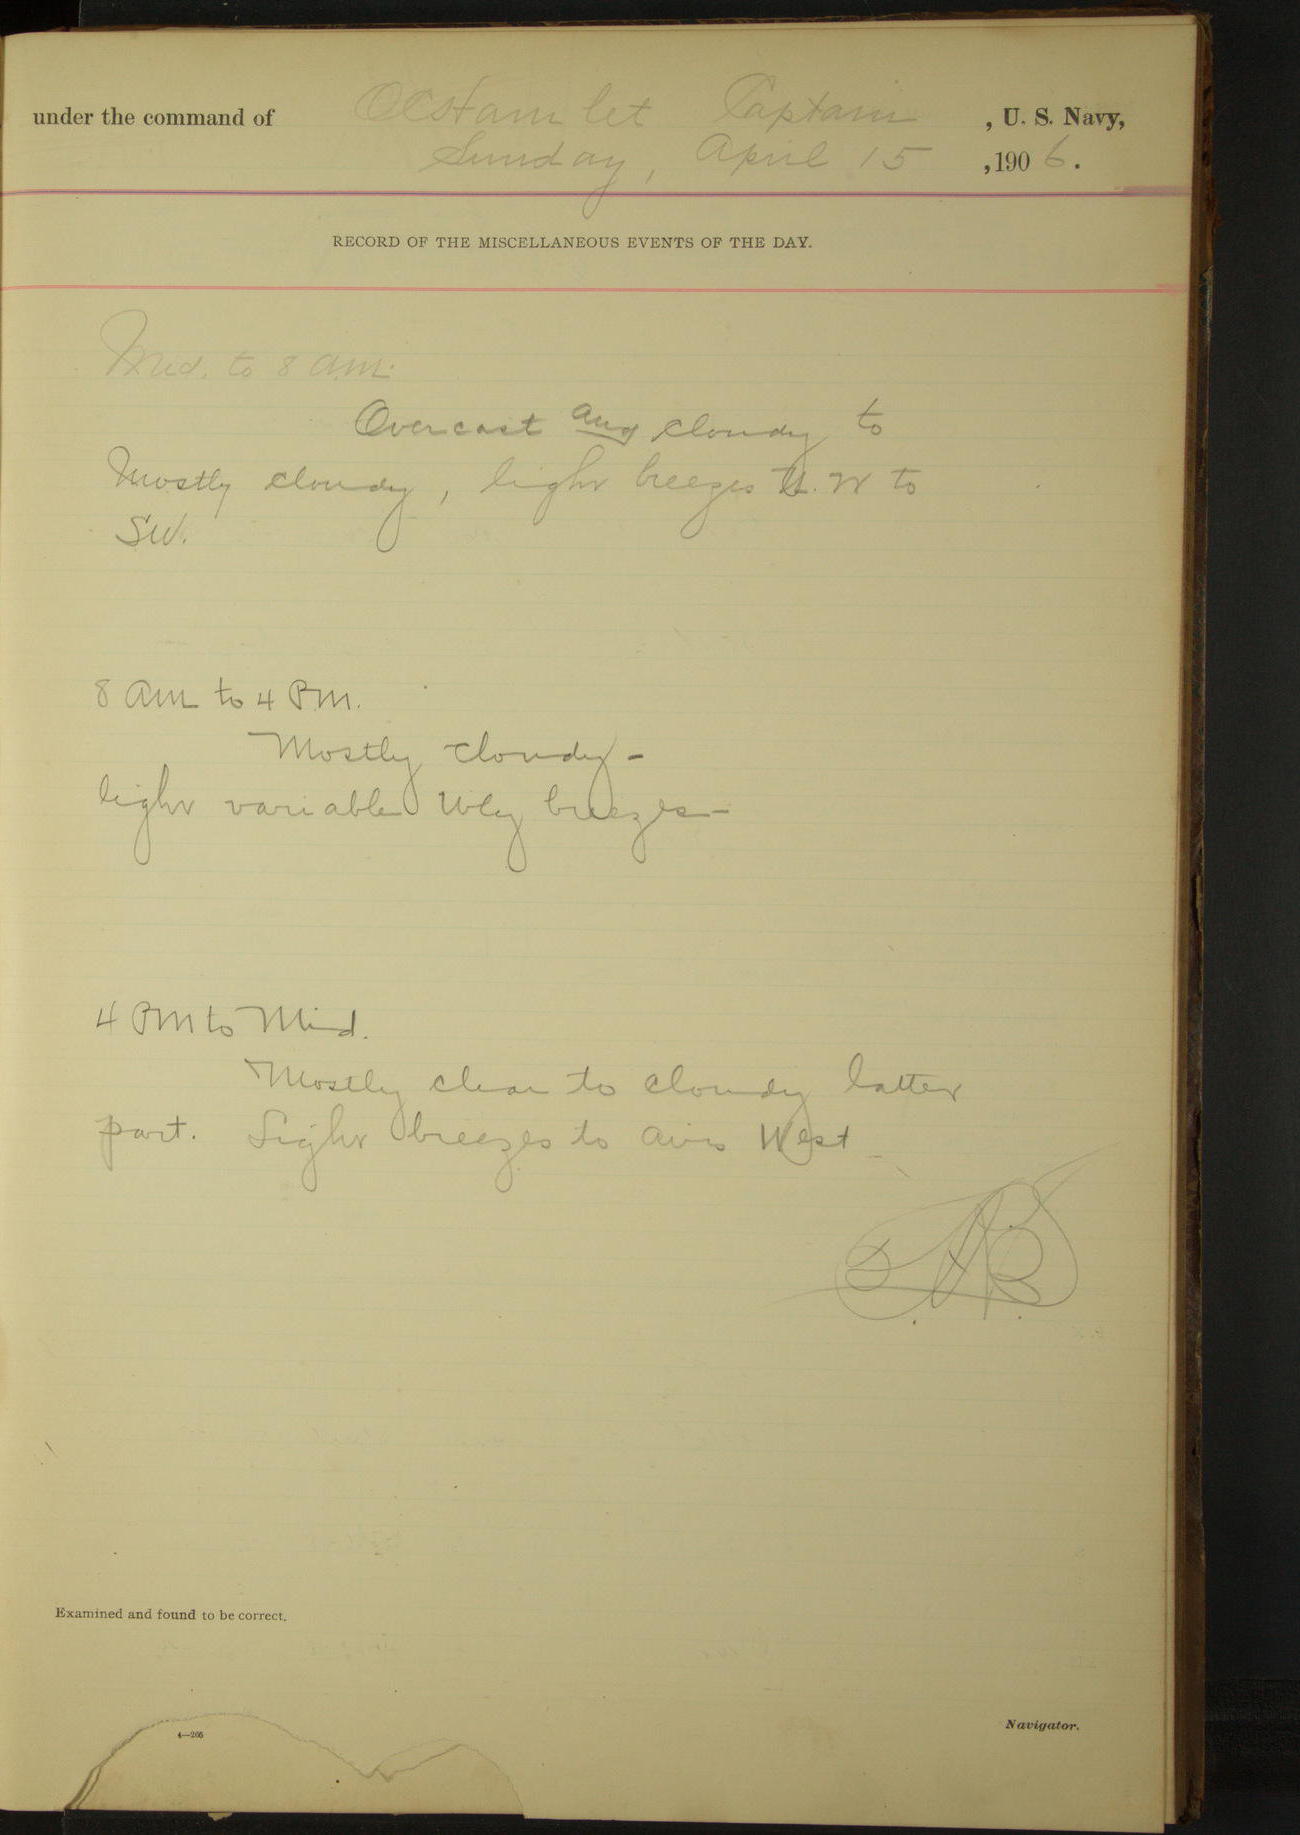 under the command of OCHamlet Captain, U. S. Navy,
Sunday, April 15, 1906.
RECORD OF THE MISCELLANEOUS EVENTS OF THE DAY.
Mid. to 8 am.
Overcast and cloudy to
Mostly cloudy, light breezes N.W to
SW.
8 am to 4 P.M.
Mostly cloudy –
light variable Wly breezes –
4 PM to Mid.
Mostly clear to cloudy latter
part. Light breezes to airs West
Examined and found to be correct.
4—266
Navigator.